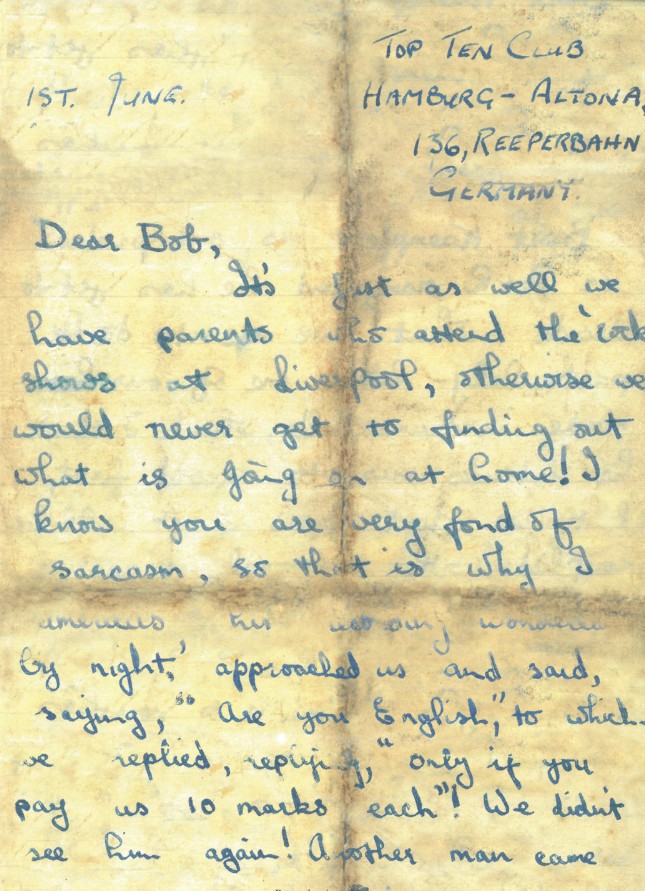 TOP TEN CLUB
1ST. JUNE.
HAMBURG - ALTONA,
136, REEPERBAHN
GERMANY.
Dear Bob,
It's just as well we
have parents who attend the 'rock
shows at Liverpool, otherwise we
would never get to finding out
what is going on at home! I
know you are very fond of
sarcasm, so that is why I
by night,' approached us and said,
saying, "Are you English," to which
we replied, replying, "only if you
pay us 10 marks each"! We didn't
see him again! Another man came